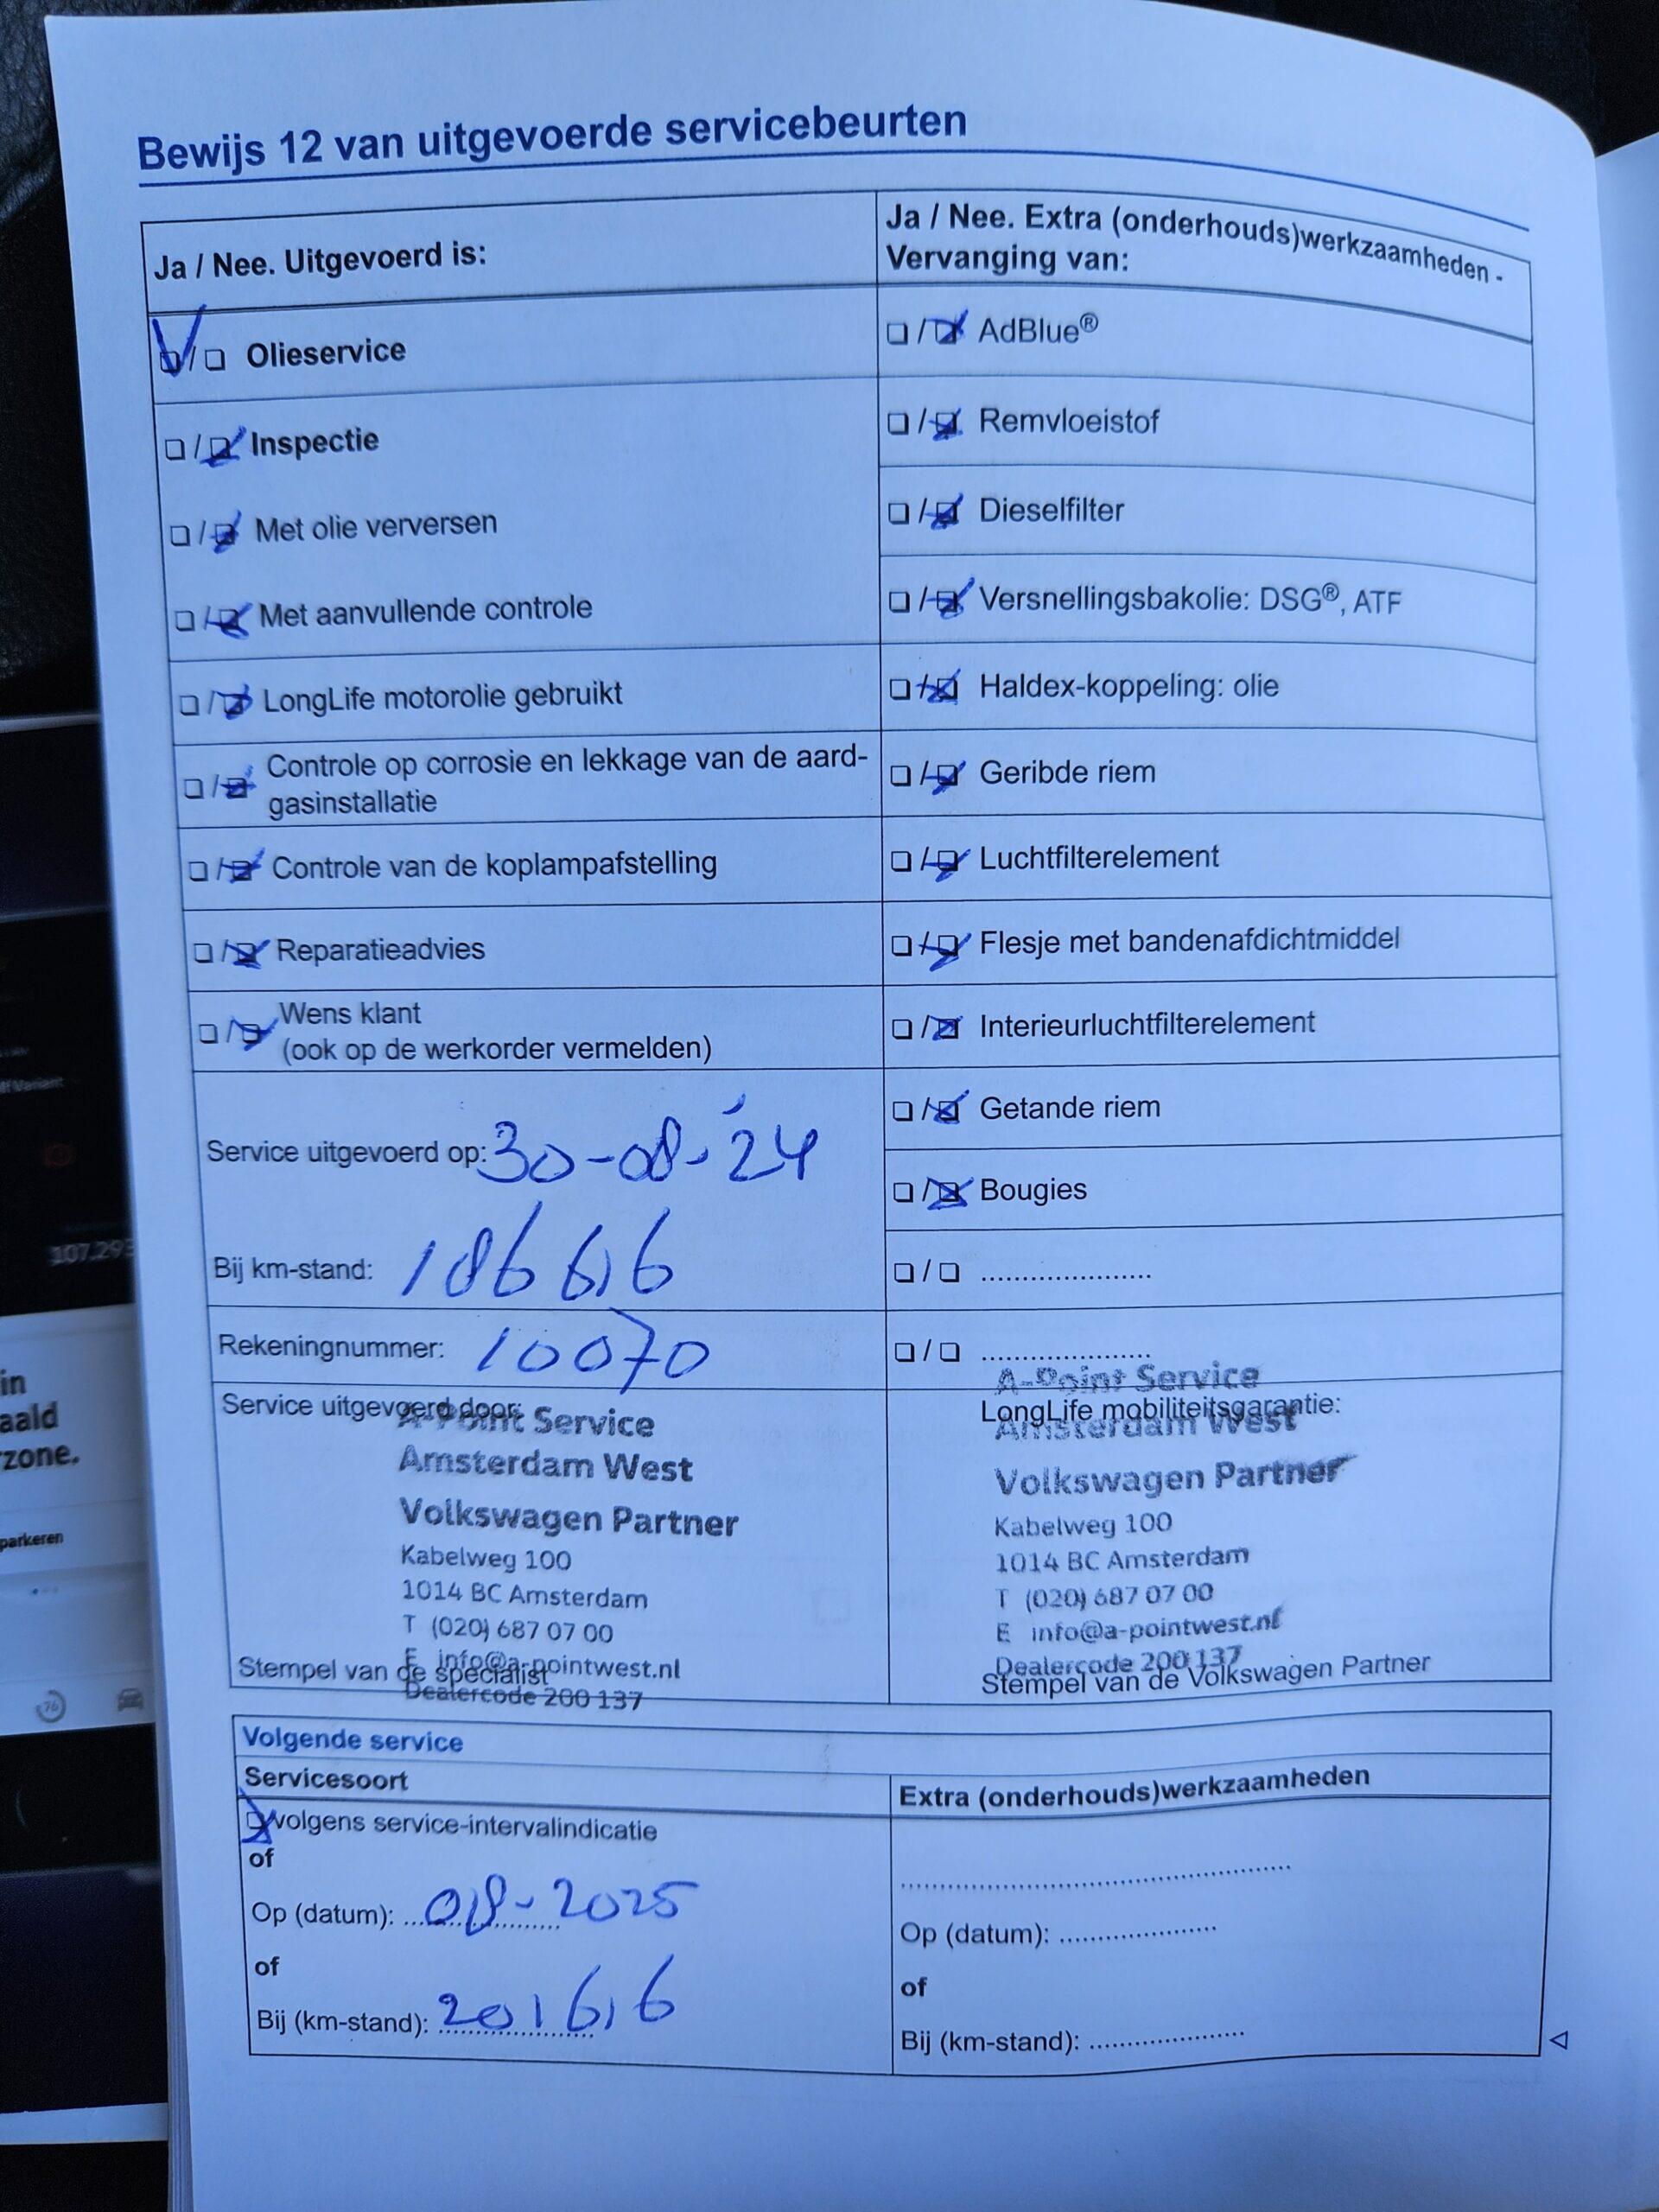 Bewijs 12 van uitgevoerde servicebeurten
Ja / Nee. Uitgevoerd is:
Olieservice
Inspectie
Met olie verversen
Met aanvullende controle
LongLife motorolie gebruikt
Controle op corrosie en lekkage van de aard-
gasinstallatie
Controle van de koplampafstelling
Reparatieadvies
Wens klant
(ook op de werkorder vermelden)
Service uitgevoerd op: 30-08-'24
Bij km-stand: 186616
Rekeningnummer: 10070
Service uitgevoerd door:
A-Point Service
Amsterdam West
Volkswagen Partner
Kabelweg 100
1014 BC Amsterdam
T (020) 687 07 00
E info@a-pointwest.nl
Stempel van de specialist
Dealercode 200 137
Ja / Nee. Extra (onderhouds)werkzaamheden -
Vervanging van:
AdBlue®
Remvloeistof
Dieselfilter
Versnellingsbakolie: DSG®, ATF
Haldex-koppeling: olie
Geribde riem
Luchtfilterelement
Flesje met bandenafdichtmiddel
Interieurluchtfilterelement
Getande riem
Bougies
/ .....................
/ .....................
A-Point Service
LongLife mobiliteitsgarantie:
Amsterdam West
Volkswagen Partner
Kabelweg 100
1014 BC Amsterdam
T (020) 687 07 00
E info@a-pointwest.nl
Dealercode 200 137
Stempel van de Volkswagen Partner
Volgende service
Servicesoort
volgens service-intervalindicatie
of
Op (datum): 08-2025
of
Bij (km-stand): 201616
Extra (onderhouds)werkzaamheden
Op (datum): ....................
of
Bij (km-stand): ....................
107.293
in
aald
zone.
parkeren
76